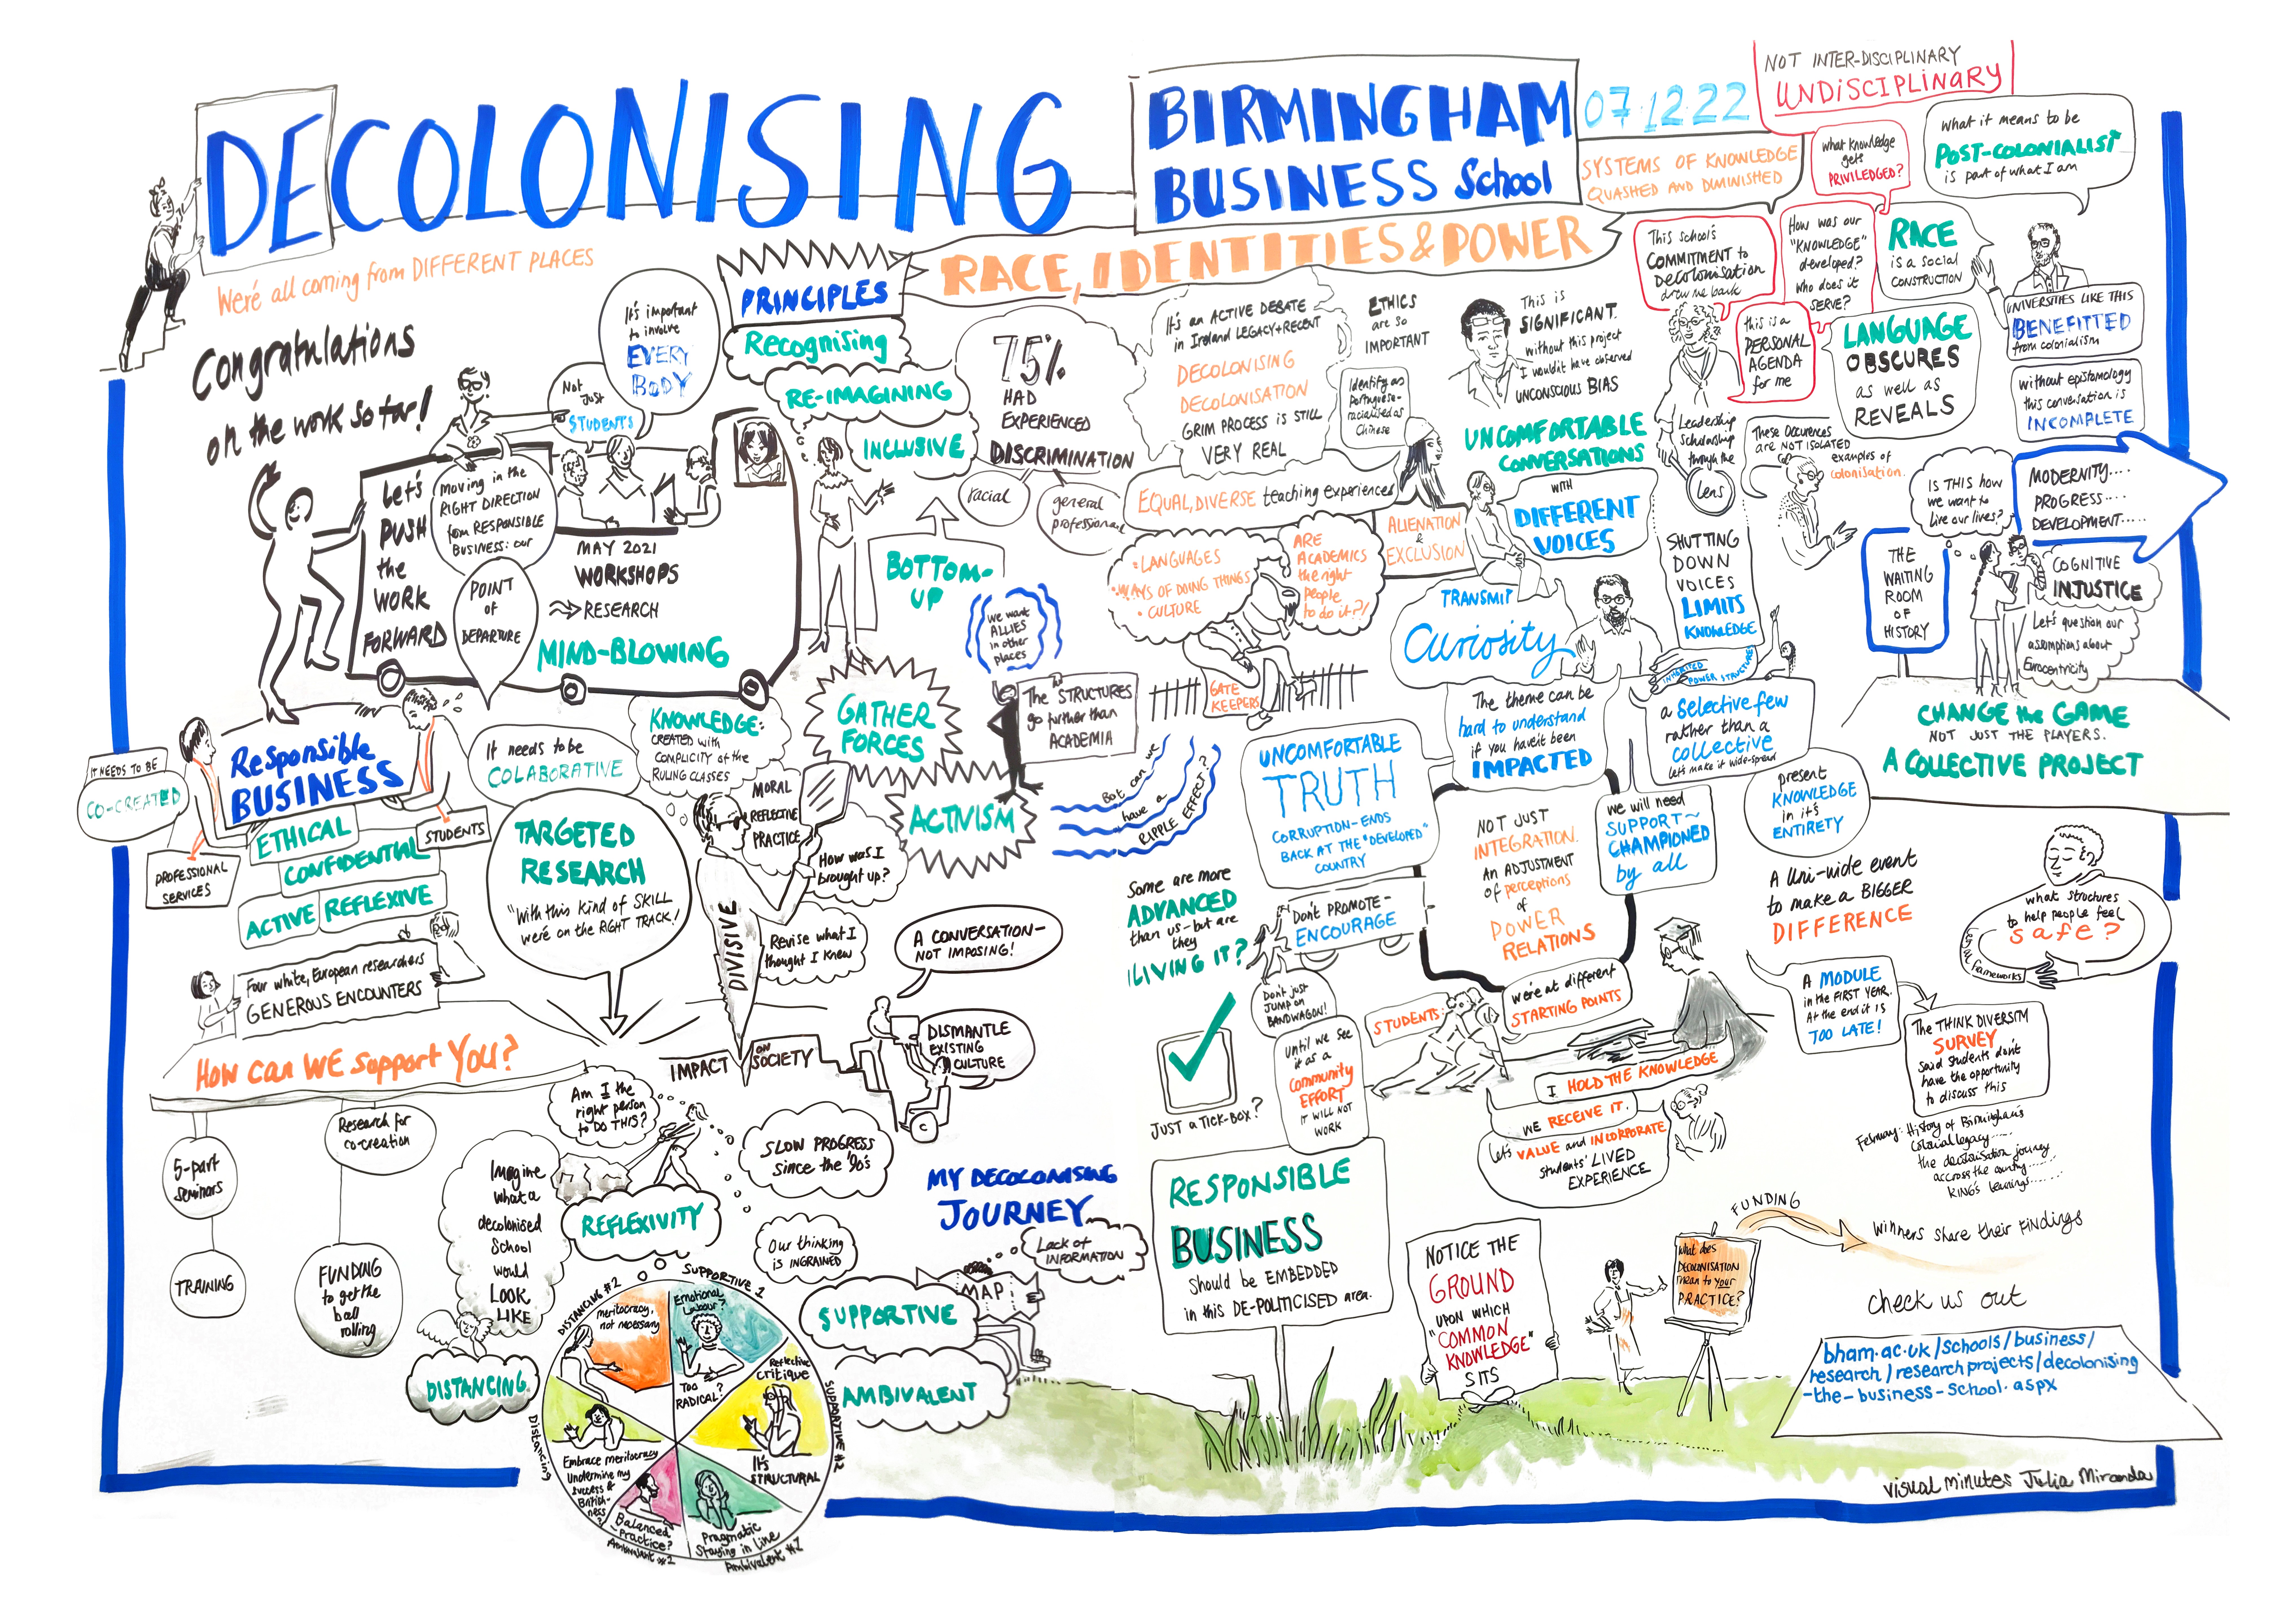 DECOLONISING
BIRMINGHAM
BUSINESS School
07 12 22
NOT INTER-DISCIPLINARY
UNDISCIPLINARY
SYSTEMS OF KNOWLEDGE
QUASHED AND DIMINISHED
what knowledge
gets
PRIVILEDGED?
what it means to be
POST-COLONIALIST
is part of what I am
We're all coming from DIFFERENT PLACES
RACE, IDENTITIES & POWER
This school's
COMMITMENT to
Decolonisation
drew me back
How was our
"KNOWLEDGE"
developed?
Who does it
SERVE?
RACE
is a social
CONSTRUCTION
this is a
PERSONAL
AGENDA
for me
LANGUAGE
OBSCURES
as well as
REVEALS
UNIVERSITIES LIKE THIS
BENEFITTED
from colonialism
without epistomology
this conversation is
INCOMPLETE
Congratulations
on the work so far!
It's important
to involve
EVERY
BODY
Not
Just
STUDENTS
PRINCIPLES
Recognising
RE-IMAGINING
INCLUSIVE
75%
HAD
EXPERIENCED
DISCRIMINATION
racial
general
professional
It's an ACTIVE DEBATE
in Ireland LEGACY+RECENT
DECOLONISING
DECOLONISATION
GRIM PROCESS IS STILL
VERY REAL
ETHICS
are so
IMPORTANT
Identify as
portuguese-
racialised as
Chinese
This is
SIGNIFICANT.
without this project
I wouldn't have observed
UNCONSCIOUS BIAS
UNCOMFORTABLE
CONVERSATIONS
WITH
DIFFERENT
VOICES
Leadership
Scholarship
through the
Lens
These Occurences
are NOT ISOLATED
examples of
colonisation.
IS THIS how
we want to
live our lives?
MODERNITY....
PROGRESS....
DEVELOPMENT.....
THE
WAITING
ROOM
OF
HISTORY
COGNITIVE
INJUSTICE
Let's question our
assumptions about
Eurocentricity
CHANGE the GAME
NOT JUST THE PLAYERS.
A COLLECTIVE PROJECT
Let's
PUSH
the
WORK
FORWARD
Moving in the
RIGHT DIRECTION
from RESPONSIBLE
BUSINESS: our
POINT
OF
DEPARTURE
MAY 2021
WORKSHOPS
RESEARCH
MIND-BLOWING
BOTTOM-
UP
we want
ALLIES
in other
places
EQUAL, DIVERSE teaching experiences
• LANGUAGES
• WAYS OF DOING THINGS
• CULTURE
ARE
ACADEMICS
the right
people
to do it?!
ALIENATION
&
EXCLUSION
GATE
KEEPERS
TRANSMIT
Curiosity
SHUTTING
DOWN
VOICES
LIMITS
KNOWLEDGE
INHERITED
POWER STRUCTURE
The theme can be
hard to understand
if you haven't been
IMPACTED
a selective few
rather than a
collective
Let's make it wide-spread
present
KNOWLEDGE
in it's
ENTIRETY
we will need
SUPPORT~
CHAMPIONED
by all
GATHER
FORCES
ACTIVISM
The STRUCTURES
go further than
ACADEMIA
But can we
have a
RIPPLE EFFECT?
IT NEEDS TO BE
CO-CREATED
Responsible
BUSINESS
PROFESSIONAL
SERVICES
STUDENTS
ETHICAL
CONFIDENTIAL
ACTIVE REFLEXIVE
It needs to be
COLABORATIVE
TARGETED
RESEARCH
"With this kind of SKILL
we're on the RIGHT TRACK!
KNOWLEDGE:
CREATED with
COMPLICITY of the
RULING CLASSES
MORAL
REFLECTIVE
PRACTICE
How was I
brought up?
Revise what I
thought I knew
DIVISIVE
IMPACT ON SOCIETY
A CONVERSATION-
NOT IMPOSING!
DISMANTLE
EXISTING
CULTURE
Four white, European researchers
GENEROUS ENCOUNTERS
HOW can WE support YOU?
5-part
seminars
TRAINING
Research for
co-creation
FUNDING
to get the
ball
rolling
Imagine
what a
decolonised
School
would
LOOK
LIKE
Am I the
right person
to DO THIS?
REFLEXIVITY
SLOW PROGRESS
since the '90's
Our thinking
is INGRAINED
MY DECOLONISING
JOURNEY
Lack of
INFORMATION
MAP
SUPPORTIVE
AMBIVALENT
DISTANCING
DISTANCING #2
meritocracy,
not necessary
SUPPORTIVE 1
Emotional
Labour?
TOO
RADICAL?
Reflective
critique
It's
STRUCTURAL
SUPPORTIVE #2
Pragmatic
Staying in Line
Ambivalent #1
Balanced
Practice?
Ambivalent #2
Embrace meritocracy
Undermine my
success &
Distancing
UNCOMFORTABLE
TRUTH
CORRUPTION-ENDS
BACK AT THE "DEVELOPED"
COUNTRY
NOT JUST
INTEGRATION.
AN ADJUSTMENT
OF perceptions
of
POWER
RELATIONS
Some are more
ADVANCED
than us-but are
they
LIVING IT?
Don't PROMOTE-
ENCOURAGE
Don't just
JUMP on
BANDWAGON!
Until we see
it as a
Community
EFFORT
IT WILL NOT
WORK
JUST a TICK-BOX?
STUDENTS:
we're at different
STARTING POINTS
I HOLD THE KNOWLEDGE
WE RECEIVE IT.
Let's VALUE and INCORPORATE
students' LIVED
EXPERIENCE
A Uni-wide event
to make a BIGGER
DIFFERENCE
what structures
to help people feel
safe?
frameworks
A MODULE
in the FIRST YEAR.
At the end it is
TOO LATE!
The THINK DIVERSITY
SURVEY
Said students don't
have the opportunity
to discuss this
February: History of Birmingham's
Colonial legacy.....
the decolonisation journey
accross the country.....
KING's learnings......
FUNDING
Winners share their FINDINGS
RESPONSIBLE
BUSINESS
should be EMBEDDED
in this DE-POLITICISED area.
NOTICE THE
GROUND
UPON WHICH
"COMMON
KNOWLEDGE"
SITS
What does
DECOLONISATION
mean to your
PRACTICE?
check us out
bham.ac.uk/schools/business/
research/research projects/decolonising
-the-business-school.aspx
visual minutes Julia Miranda